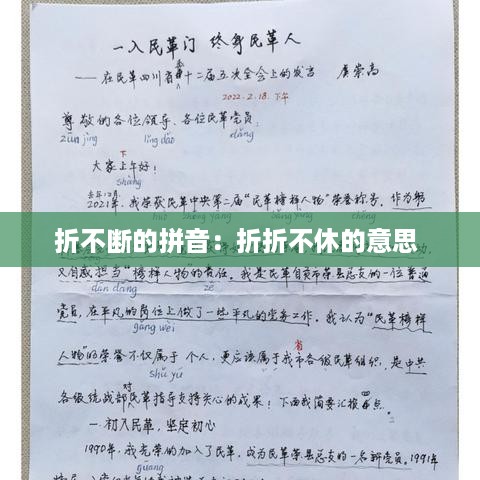 一入民革门 终身民革人
——在民革四川省委十二届五次全会上的发言 虞崇高
2022.2.18.下午
尊敬的各位领导、各位民革党员:
zūn jìng lǐng dǎo dǎng
大家上午好!
下
shàng
去年12月
2021年,我荣获民革中央第二届“民革榜样人物”荣誉称号,作为
折不断的拼音:折折不休的意思
又自感担当“榜样人物”的责任。我是民革自贡市荣县总支的一位普通
dān dāng zé
党员,在平凡的岗位上做了一些平凡的党务工作。我认为“民革榜样
gǎng wèi
人物”的荣誉不仅属于个人,更应该属于我市各级民革组织,是中共
省
shǔ yú
各级统战部对民革指导支持关心的成果!下面我简要汇报4点。
一、初入民革,坚定初心
1990年,我光荣的加入了民革,成为民革荣县总支的一名新党员。1991年
guāng